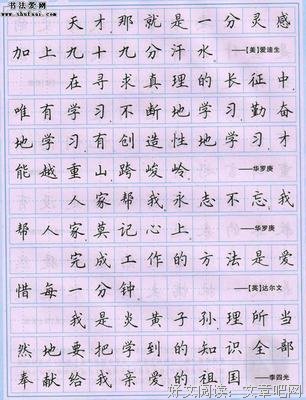 书法爱网
www.shufaai.com
天才那就是一分灵感
加上九十九分汗水 ——【美】爱迪生
在寻求真理的长征中
唯有学习不断地学习勤奋
地学习有创造性地学习才
能越重山跨峻岭 ——华罗庚
人家帮我永志不忘我
帮人家莫记心上 ——华罗庚
完成工作的方法是爱
惜每一分钟 ——【英】达尔文
我是炎黄子孙理所当
然地要把学到的知识全部
奉献给我亲爱的祖国 ——李四光
好文阅读：文章吧网